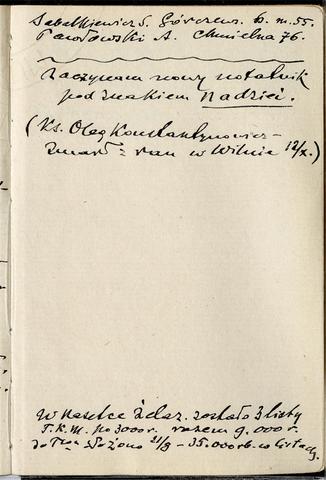 Sabatkiewicz S. Górczew. 6. m. 55.
Pawłowski A. Chmielna 76.
Zaczynam nowy notatnik
pod znakiem Nadziei.
(Ks. Oleg Konstantynowicz -
zmarł z ran w Wilnie 12/X.)
W kasetce żelaz. zostało 3 listy
T.K.M. po 3000 r. razem 9.000 r.
do Twa złożono 21/8 - 35.000 rb. w listach.